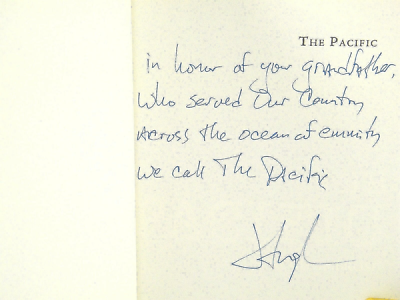 THE PACIFIC
in honor of your grandfather,
who served our Country
Across the ocean of enmity
we call The Pacific
Hugh